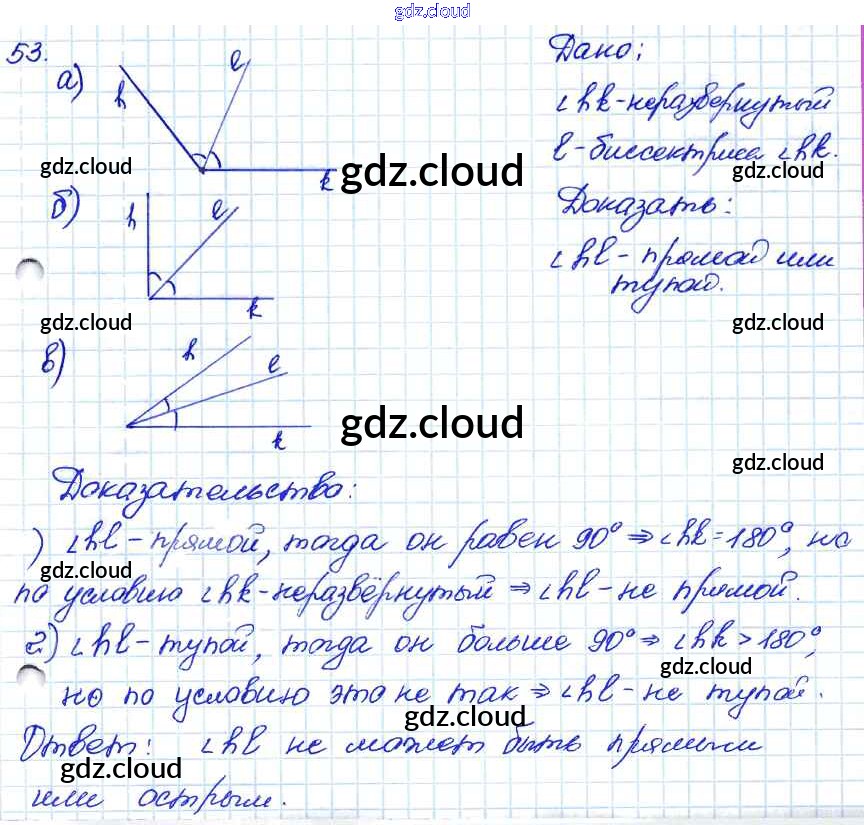 gdz.cloud
53.
а)
h
l
k
Дано:
∠hk-неразвернутый
l-биссектриса ∠hk.
gdz.cloud
gdz.cloud
gdz.cloud
б)
h
l
k
Доказать:
∠hl - прямой или
тупой.
gdz.cloud
gdz.cloud
в)
h
l
k
gdz.cloud
gdz.cloud
Доказательство:
) ∠hl - прямой, тогда он равен 90° ⇒ ∠hk = 180°, но
gdz.cloud
по условию ∠hk-неразвёрнутый ⇒ ∠hl - не прямой.
2) ∠hl - тупой, тогда он больше 90° ⇒ ∠hk > 180°,
gdz.cloud
но по условию это не так ⇒ ∠hl - не тупой.
gdz.cloud
Ответ: ∠hl не может быть прямым
gdz.cloud
или острым.